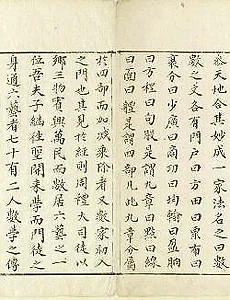 參天地合其妙成一家法名之曰數
數之各有門戶曰方田曰粟布曰
衰分曰少廣曰商功曰均輸曰盈朒
曰方程曰句股是謂九章曰點曰線
曰面曰體是謂四部凡此九章分屬
於四部而加減乘除者又數家初入
之門也其見於經則周禮大司徒以
鄉三物賓興萬民而數居六藝之一
位吾夫子繼往聖開來學而門徒之
身通六藝者七十有二人數學之傳